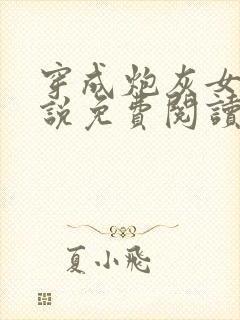 穿成炮灰女
說免費閱讀
夏小飛